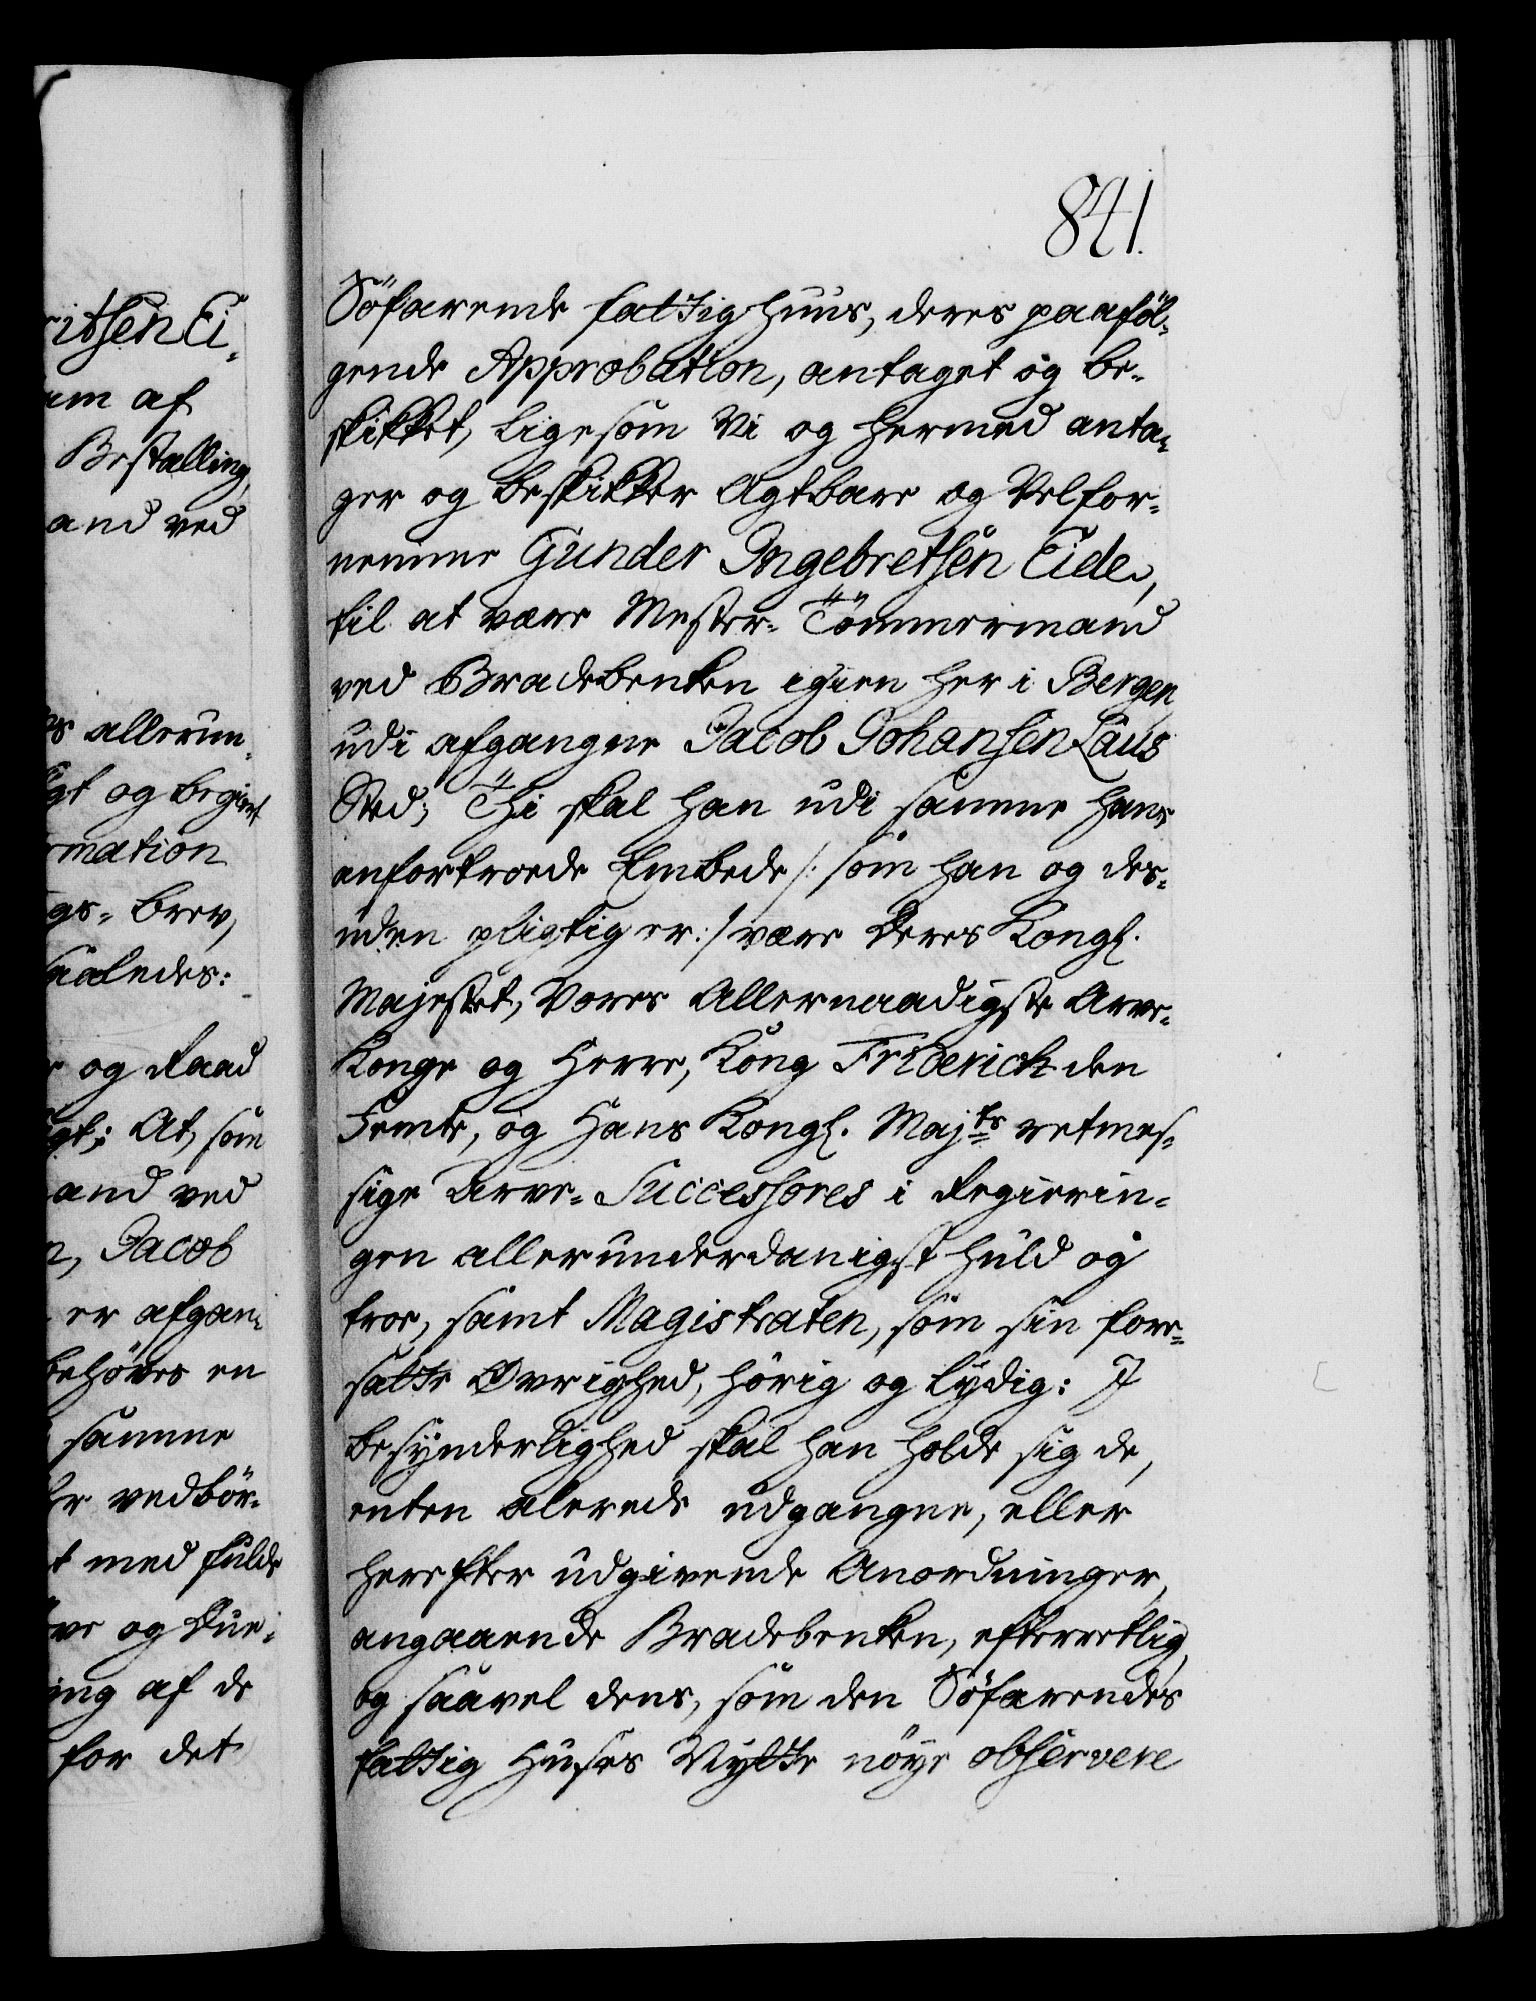 ritsen Ei-
am af
Bestalling
and ved
es allerun-
gt og begiert
rmation
gs- brev,
saaledes:
r og Raad
gt; At, som
and ved
n, Jacob
er afgan-
behöves en
samme
er vedbör-
t med fulde
ve og Due-
ing af de
for det
841.
Söfarende fattighuus, deres paaföl-
gende Approbation, antaget og be-
skikket, ligesom Vi og hermed anta-
ger og beskikker Agtbare og Velfor-
nemme Gunder Ingebretsen Eide,
til at være Mester- Tömmermand
ved Bradebenken igien her i Bergen
udi afgangne Jacob Johansen Laus
Sted; Thi skal han udi samme hans
anfortroede Embede /: som han og des-
uden pligtig er :/ være Deres Kongl.
Majestet, Vores Allernaadigste Arve-
Konge og Herre, Kong Friderich den
Femte, og Hans Kongl. Majts retmes-
sige Arve- Successores i Regierin-
gen allerunderdanigst huld og
troe, samt Magistraten, som sin fore-
satte Øvrighed, hörig og lydig: I
besynderlighed skal han holde sig de,
enten alerede udgangne, eller
herefter udgivende Anordninger,
angaaende Bradebenken, efterretlig,
og saavel dens, som den Söfarendes
fattig Huses Nytte nöye observere